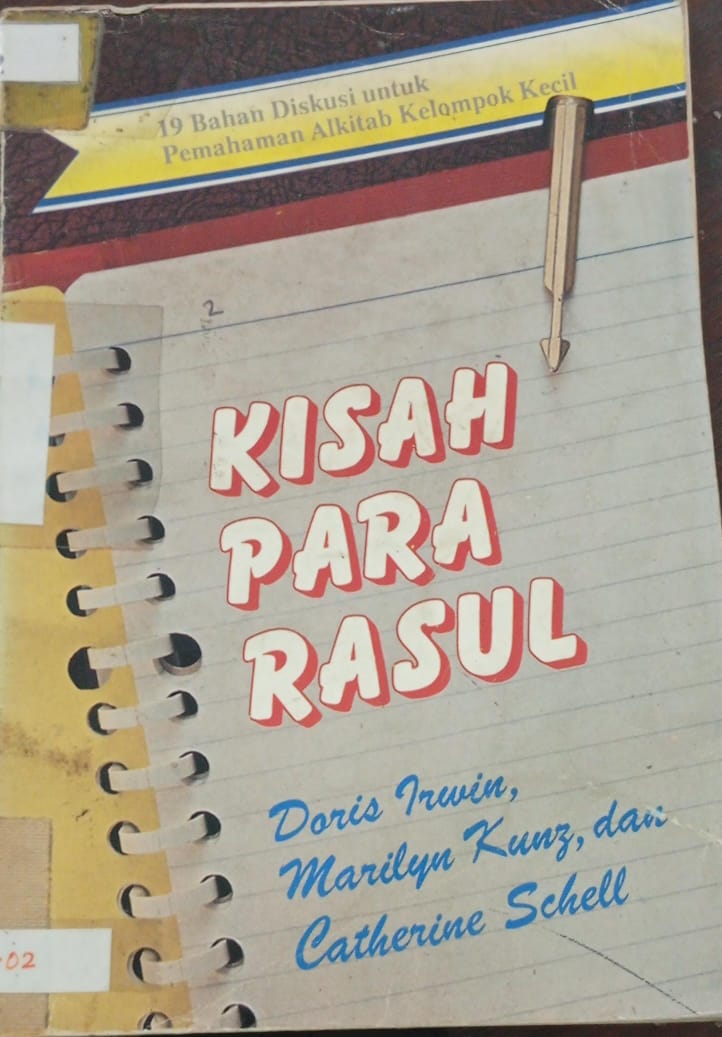 19 Bahan Diskusi untuk
Pemahaman Alkitab Kelompok Kecil
2
KISAH
PARA
RASUL
Doris Irwin,
Marilyn Kunz, dan
Catherine Schell
02